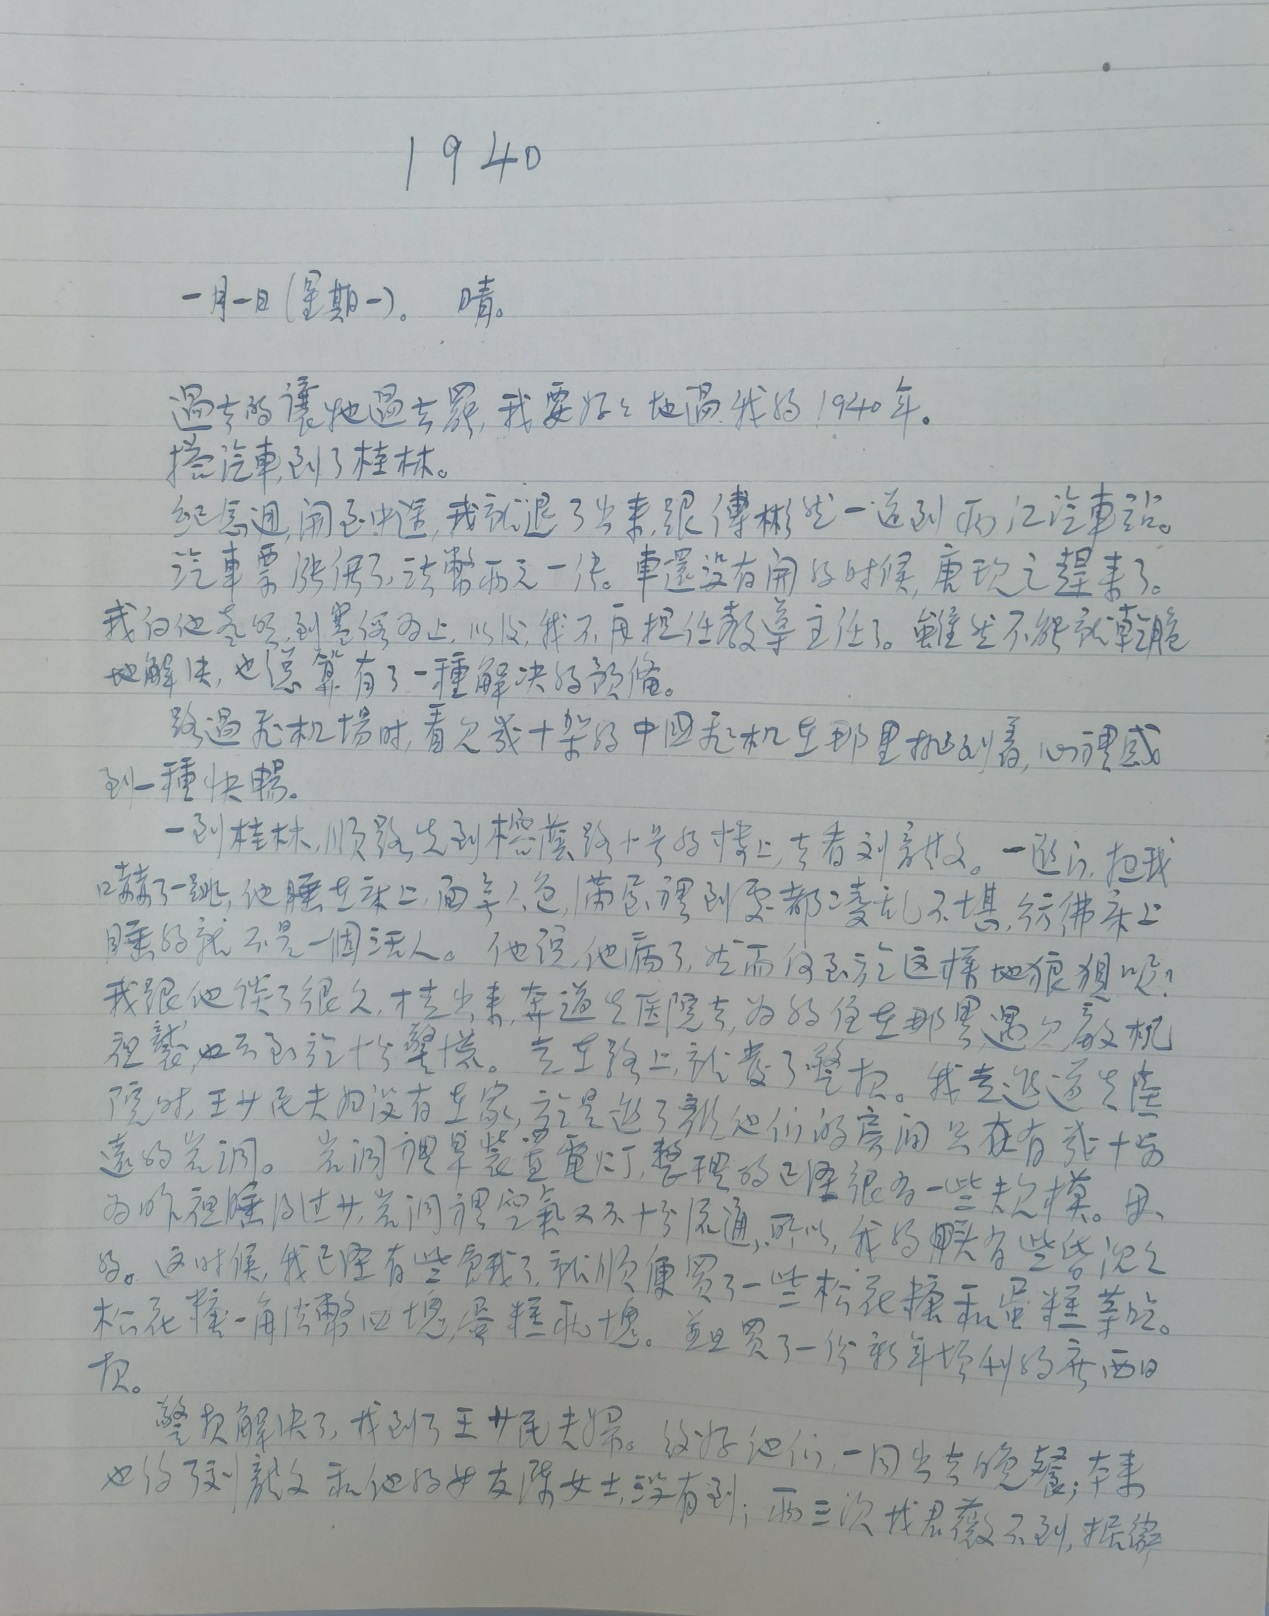 1940
一月一日(星期一)。 晴。
過去的讓牠過去罷,我要好々地過我的1940年。
搭汽車,到了桂林。
紀念週,開至中途,我就退了出來,跟傅彬然一道到兩江汽車站。
汽車票漲價了,法幣兩元一張。車還沒有開的时候,唐現之趕來了。
我向他表明,到寒假为止,以後,我不再担任教導主任了。雖然不能就乾脆
地解決,也總算有了一種解決的預備。
路過飛机場时,看见幾十架的中国飛机在那里排列着,心裡感
到一種快暢。
一到桂林,順路先到榕蔭路十号的楼上,去看刘毅文。一進门,把我
嚇了一跳,他睡在床上,面無人色,滿屋裡到處都凌乱不堪,彷彿床上
睡的就不是一個活人。他说,他病了,然而何至於这樣地狼狽呢?
我跟他谈了很久,才走出来,奔道生医院去,为的住在那里,遇见敵机
祖襲,也不至於十分驚慌。走在路上,就發了警报。我走進道生医
院时,王廿民夫妇没有在家,於是進了離他们的房间只在有幾十步
遠的岩洞。岩洞裡早裝置電灯,整理的已經很有一些规模。因
为昨祖睡的过少,岩洞裡空氣又不十分流通,所以,我的頭有些昏沈々
的。这时候,我已經有些餓了,就順便買了一些松花糖和蛋糕举吃。
松花糖一角法幣四塊,蛋糕兩塊。並且買了一份新年增刊的廣西日
报。
警报解決了,找到了王廿民夫婦。约好他们,一同出去晚餐;本来
也约了刘毅文和他的女友陳女士,没有到;兩三次找君薇不到,据徽